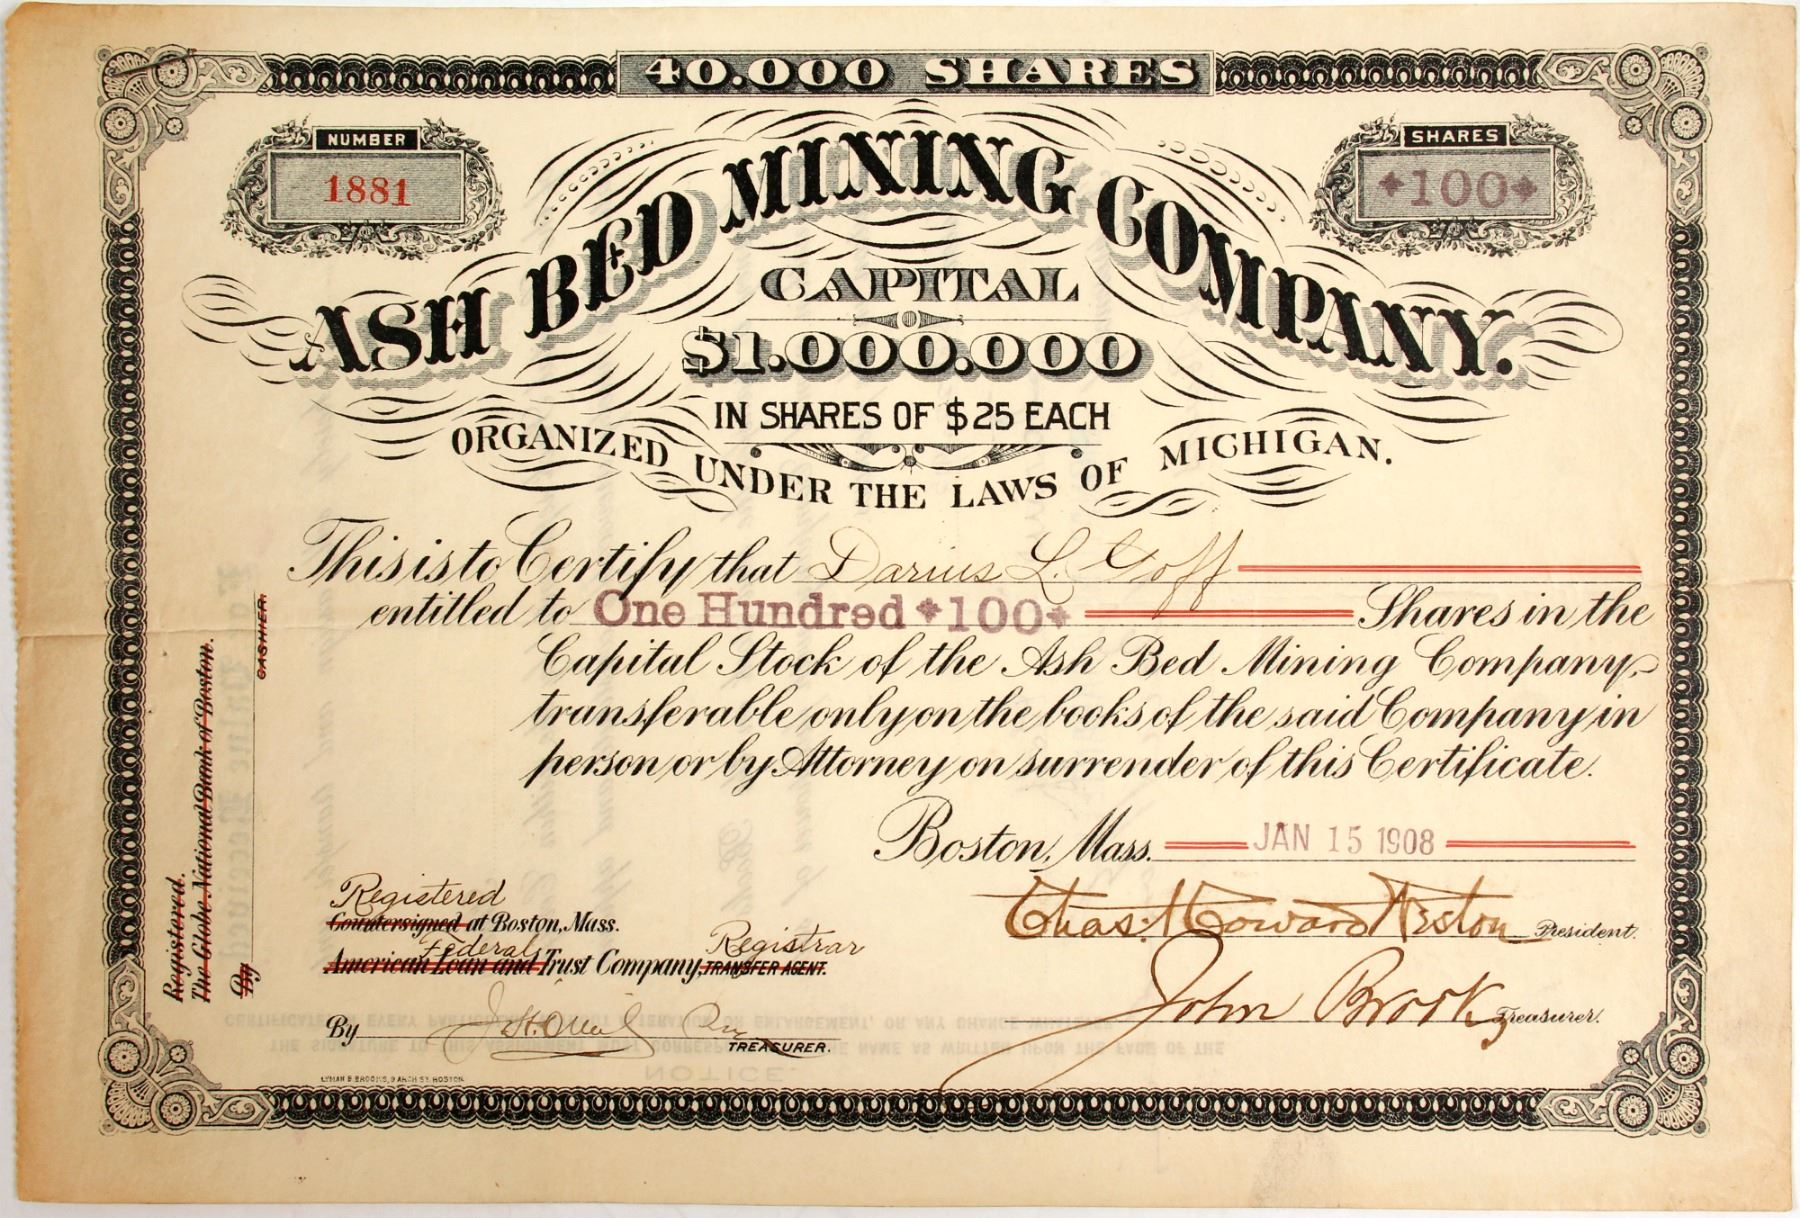 40.000 SHARES
NUMBER
1881
SHARES
100
ASH BED MINING COMPANY.
CAPITAL
$1.000.000
IN SHARES OF $25 EACH
ORGANIZED UNDER THE LAWS OF MICHIGAN.
This is to Certify that Darius L. Goff
entitled to One Hundred 100 Shares in the
Capital Stock of the Ash Bed Mining Company,
transferable only on the books of the said Company in
person or by Attorney on surrender of this Certificate.
Boston, Mass. JAN 15 1908
Registered.
The Globe National Bank of Boston.
By
CASHIER.
Registered
Countersigned at Boston, Mass.
Federal Registrar
American Loan and Trust Company, TRANSFER AGENT.
By
TREASURER.
Chas. Howard President.
John Brook Treasurer.
LYMAN B. BROOKS, 9 ARCH ST. BOSTON.
NOTICE.
THE SIGNATURE TO THIS ASSIGNMENT MUST CORRESPOND THE NAME AS WRITTEN UPON THE FACE OF THE
CERTIFICATE EVERY ALTERATION OR ENLARGEMENT, OR ANY CHANGE WHATEVER